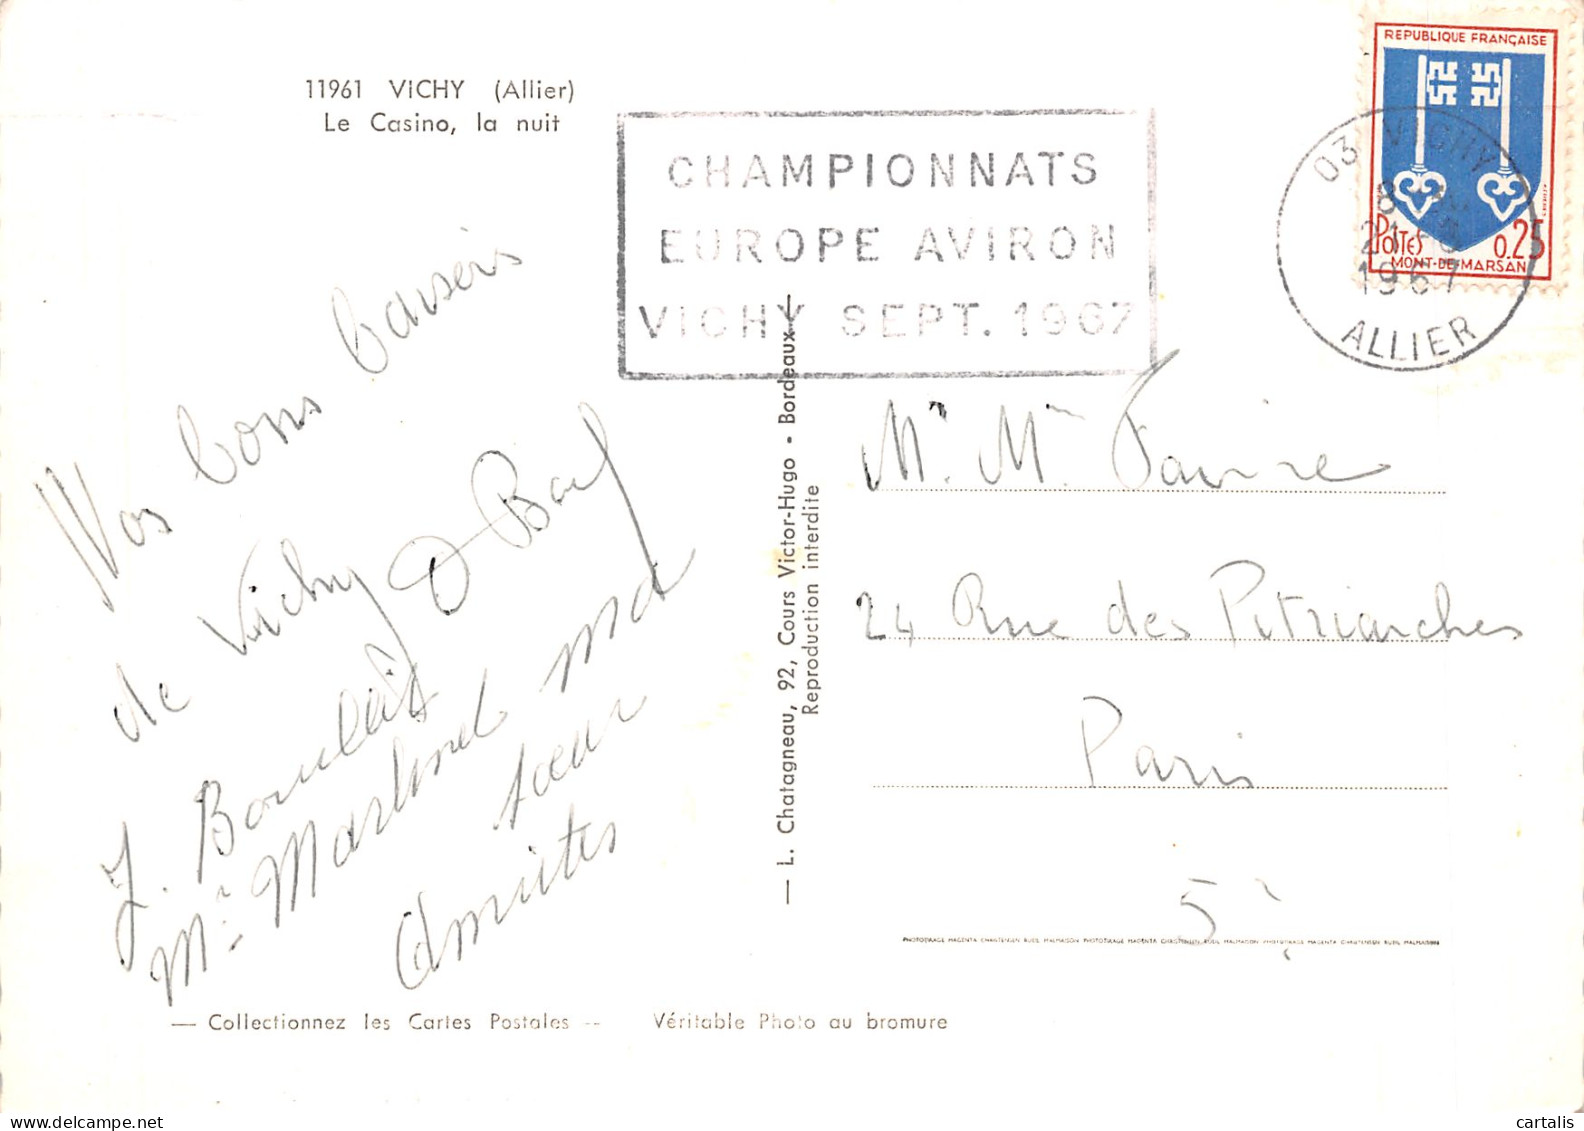 11961 VICHY (Allier)
Le Casino, la nuit
CHAMPIONNATS
EUROPE AVIRON
VICHY SEPT. 1967
REPUBLIQUE FRANÇAISE
POSTES 0.25
MONT-DE-MARSAN
03 VICHY
1967
ALLIER
Nos bons baisers
de Vichy
J.
Mr Martinet ma
sœur
Amitiés
L. Chatagneau, 92, Cours Victor-Hugo • Bordeaux
Reproduction interdite
Mr. Mme Favre
24 Rue des Patriarches
Paris
5e
— Collectionnez les Cartes Postales -- Véritable Photo au bromure
cartalis